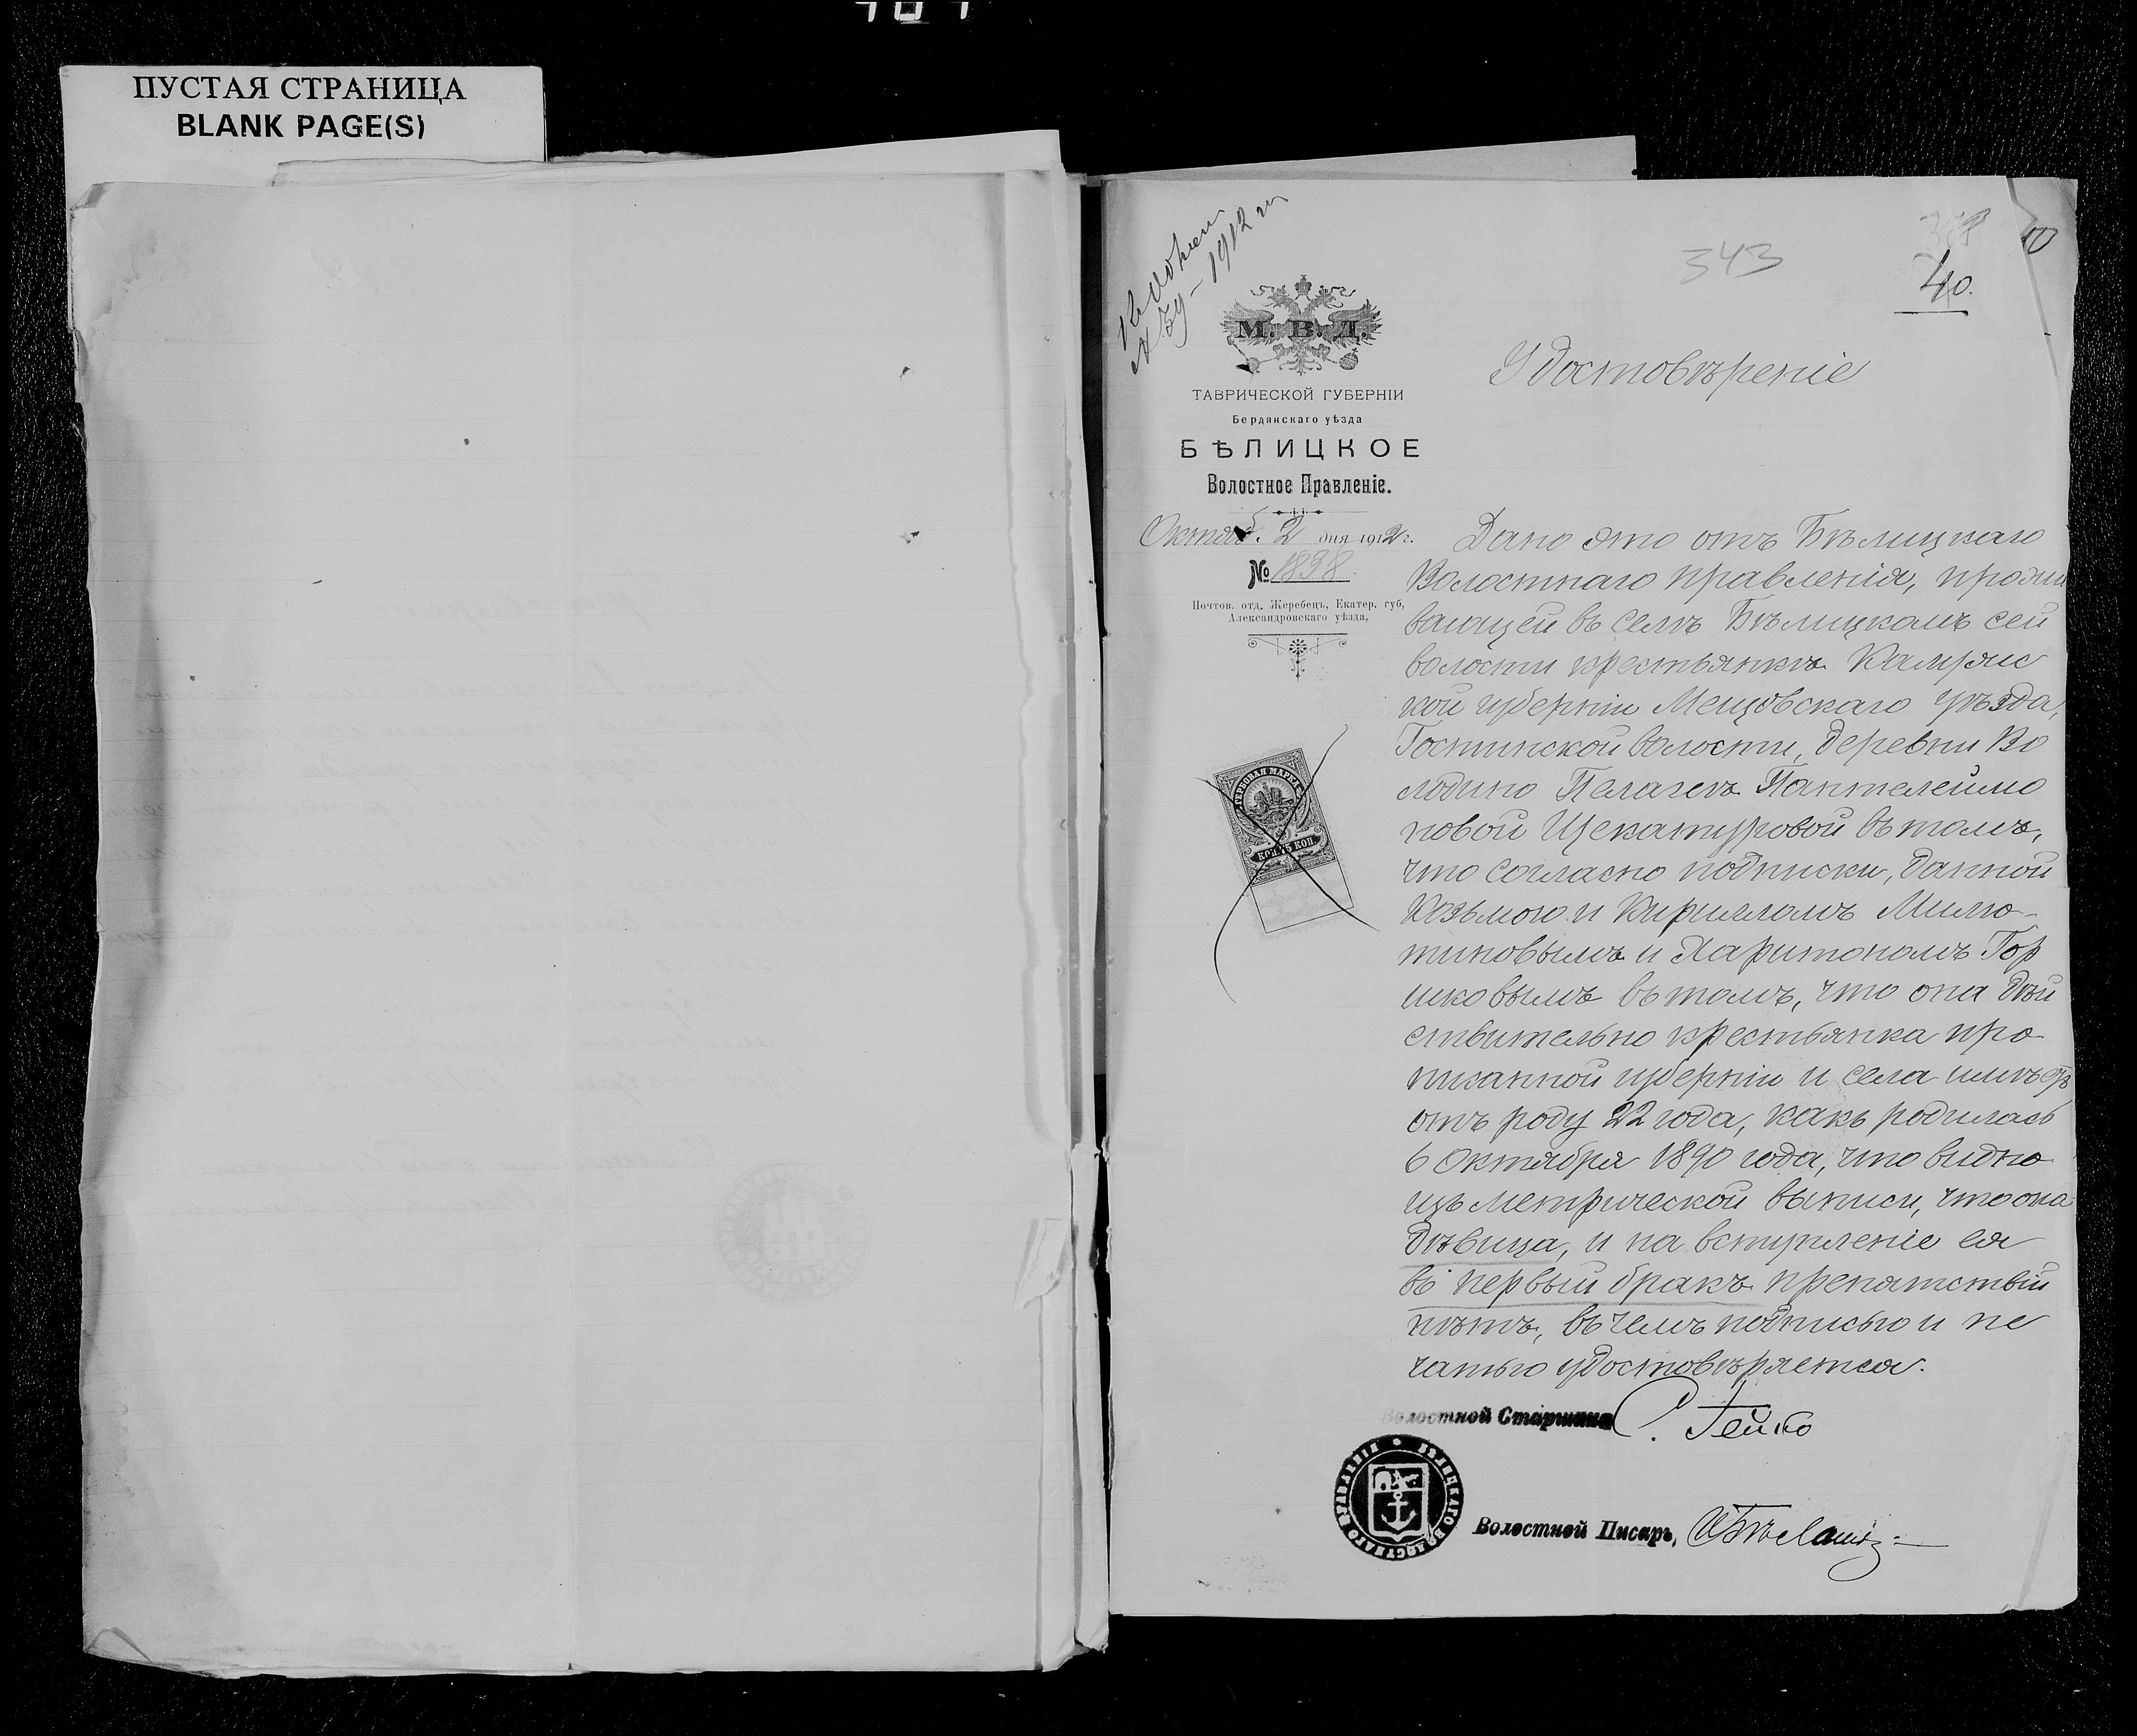 ПУСТАЯ СТРАНИЦА
BLANK PAGE(S)
№ 39 – 1912 г
343
40.
М. В. Д.
ТАВРИЧЕСКОЙ ГУБЕРНІИ
Бердянскаго уѣзда
БѢЛИЦКОЕ
Волостное Правленіе.
Октяб. 2 дня 1912 г.
№ 1898
Почтов. отд. Жеребецъ, Екатер. губ,
Александровскаго уѣзда,
ГЕРБОВАЯ МАРКА
75 КОП
Удостовѣреніе
Дано это отъ Бѣлицкаго
Волостнаго правленія, прожи
вающей въ селѣ Бѣлицкомъ сей
волости крестьянкѣ Калужс
кой губерніи Мещовскаго уѣзда,
Гостинской волости, деревни Во
лодино Пелагеѣ Пантелеймо
новой Щекатуровой въ томъ,
что согласно подписки, данной
Козьмою и Кирилломъ Милю-
тиковымъ и Харитономъ Гор
шковымъ въ томъ, что она дѣй
ствительно крестьянка про-
писанной губерніи и села имѣетъ
отъ роду 22 года, какъ родилась
6 Октября 1890 года, что видно
изъ метрической выписи, что она
дѣвица, и на вступленіе ея
въ первый бракъ препятствій
нѣтъ, въ чемъ подписью и пе
чатью удостовѣряется.
Волостной Старшина С. Гейко
БѢЛИЦКАГО ВОЛОСТНАГО ПРАВЛЕНІЯ
Волостной Писарь,